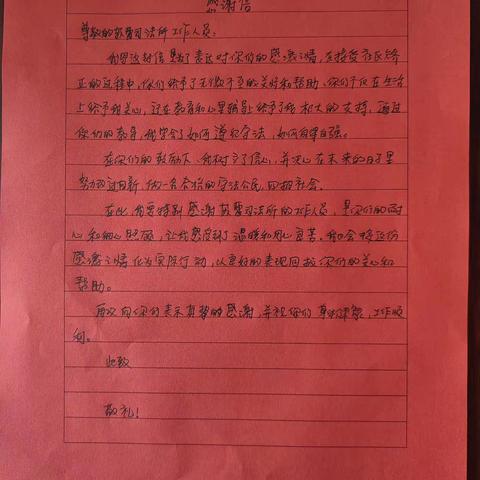 感谢信
尊敬的敖包司法所工作人员:
我写这封信是为了表达对你们的感激之情,在接受社区矫
正的过程中,你们给予了无微不至的关怀和帮助。你们不仅在生活
上给予我关心,还在教育和心里辅导上给予了我极大的支持,通过
你们的教导,我学会了如何遵纪守法,如何自尊自强。
在你们的鼓励下,我树立了信心,并决心在未来的日子里
努力改过自新,做一名合格的守法公民,回报社会。
在此我要特别感谢司法所的工作人员,是你们的耐
心和细心照顾,让我感受到了温暖和关怀,我会将这份
感激之情化为实际行动,以更好的表现回报你们的关心和
帮助。
再次向你们表示真挚的感谢,并祝你们身体健康,工作顺
利。
此致
敬礼!